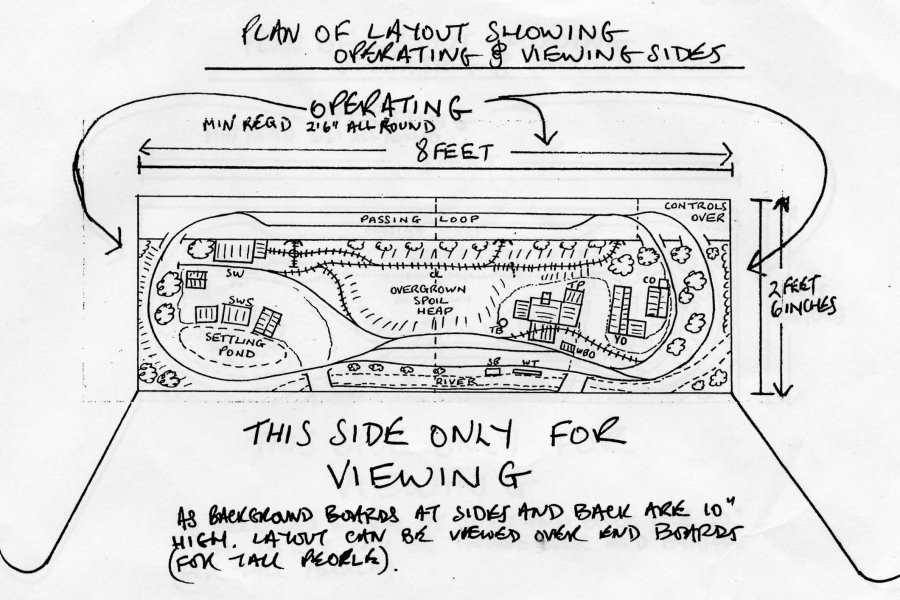 PLAN OF LAYOUT SHOWING
OPERATING & VIEWING SIDES
OPERATING
MIN REQD 2'6" ALL ROUND
8 FEET
CONTROLS
OVER
PASSING LOOP
2 FEET
6 INCHES
SW
CL
OVERGROWN
SPOIL
HEAP
TP
CO
SWS
SETTLING
POND
TB
WBO
YO
SB
WT
RIVER
THIS SIDE ONLY FOR
VIEWING
AS BACKGROUND BOARDS AT SIDES AND BACK ARE 10"
HIGH. LAYOUT CAN BE VIEWED OVER END BOARDS
(FOR TALL PEOPLE).